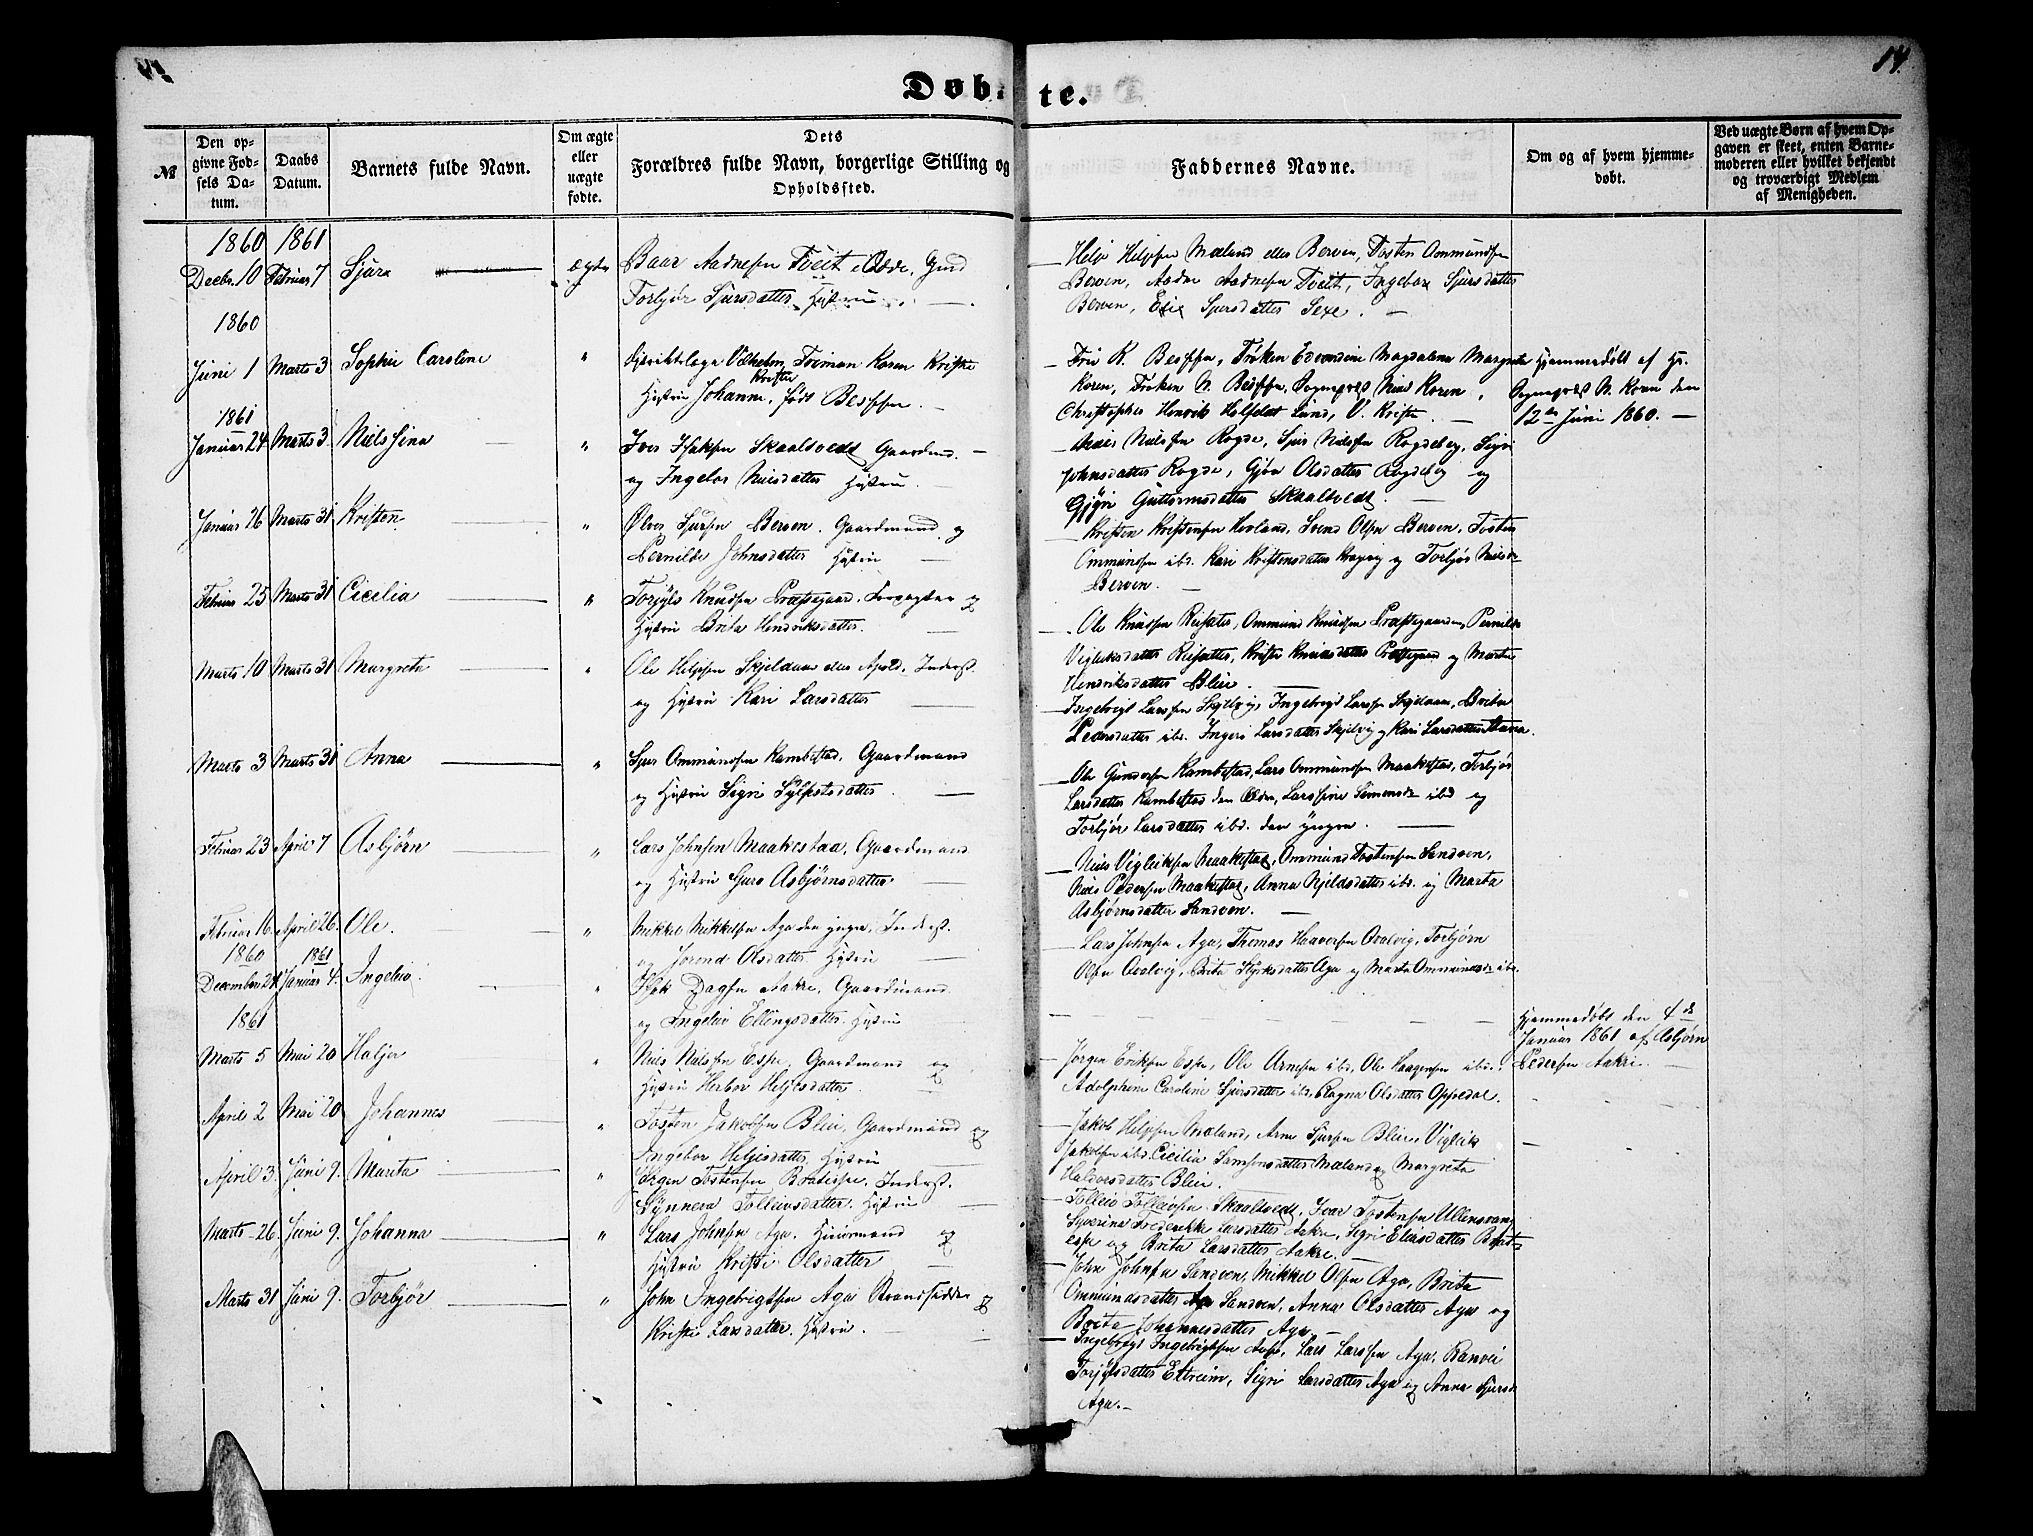 14.
Døbte.
№
Den opgivne Fødsels Datum.
Daabs Datum.
Barnets fulde Navn.
Om ægte eller uægte fødte.
Dets Forældres fulde Navn, borgerlige Stilling og Opholdssted.
Faddernes Navne.
Om og af hvem hjemmedøbt.
Ved uægte Børn af hvem Opgaven er skeet, enten Barnemoderen eller hvilket bekjendt og troværdigt Medlem af Menigheden.
1860 1861
Decbr. 10 Februar 7 Sjura ægte Baar Aadnesen Tveit, Odde, Gmd
Torbjør Sjursdatter, Hustru
Helje Helgesen Mæland eller Berven, Tosten Ommundsen
Berven, Aadne Aadnesen Tveit, Ingebor Sjursdatter
Berven, Sjursdatter Sexe.
1860
Juni 1 Marts 3 Sophie Caroline " Distriktslæge Koren Krist
Hustru Johanne, født
Koren, Frøken Sognepræst Koren,
Christopher Henrik Lund,
Hjemmedøbt af Hr.
Sognepræst N. Koren den
12te Juni 1860.
1861
Januar 24 Marts 3. Nielssina " Iver Isaksen Skaaltvedt Gaardmd.
og Ingebor Nielsdatter Hustru
Nielsen Rogde, Sjur Nielsen Rogdeberg, Sigri
Johnsdatter Rogde, Gjøa Olsdatter Rogdeberg og
Guttormsdatter Skaaltvedt
Januar 26 Marts 31 Kristen " Sjursen Berven. Gaardmand og
Pernilde Johnsdatter Hustru
Kristen Kristensen Hovland, Svend Olsen Berven, Tosten
Ommundsen ibd. Kari Kristensdatter og Torbjør Nielsd.
Berven.
Februar 25 Marts 31 Cicilia " Torgils Knudsen Præstegaard, og
Hustru Brita Hendriksdatter.
Ole Knudsen Reisæter, Ommund Knudsen Præstegaarden, Pernilde
Vigleiksdatter Reisæter, Præstegaard og Marta
Hendriksdatter Bleie.
Marts 10 Marts 31 Margreta " Ole Helgesen Skjeldaas eller Apold, Inderst.
og Hustru Kari Larsdatter
Ingebrigt Larssen Skjelvig, Ingebrigt Larssen Skjeldaas, Brita
Pedersdatter ibd. Ingeri Larsdatter Skjelvig og Kari Larsdatter
Marts 3 Marts 31 Anna " Sjur Ommundsen Kambestad, Gaardmand
og Hustru Sigri Sylfestsdatter.
Ole Gundersen Kambestad, Lars Ommundsen Maakestad, Torbjør
Larsdatter Kambestad den ældre, Larssine Simonsdr ibd og
Torbjør Larsdatter ibd. den yngre.
Februar 23 April 7 Asbjørn " Lars Johnsen Maakestad, Gaardmand
og Hustru Guro Asbjørnsdatter
Niels Vigleiksen Maakestad, Ommund Tostensen Sandven,
Niels Pedersen Maakestad, Anna Kjeldsdatter ibd. og Marta
Asbjørnsdatter Sandven.
Februar 16. April 26. Ole. " Mikkel Mikkelsen Aga den yngre, Inderst.
og Jorend Olsdatter Hustru
Lars Johnsen Aga, Thomas Haaversen Qvalvig, Torbjørn
Olsen Qvalvig, Brita Styrksdatter Aga og Marta Ommundsdr ibd.
1860 1861
December 24 Januar 4. Ingeleiv " Isak Dagsen Aakre, Gaardmand
og Ingeleiv Ellingsdatter. Hustru
Hjemmedøbt den 4de
Januar 1861 af Asbjørn
Pedersen Aakre.
1861
Marts 5 Mai 20 Helje " Niels Nielssen Espe, Gaardmand og
Hustru Herbor Heljesdatter.
Jørgen Eriksen Espe, Ole Arnesen ibd, Ole Haagensen ibd.
Adolphine Caroline Sjursdatter ibd. Ragna Olsdatter Oppedal.
April 2 Mai 20 Johannes " Tosten Jakobsen Bleie, Gaardmand og
Ingebor Heljesdatter, Hustru
Jakob Helgesen Mæland, Arne Sjursen Bleie, Vigleik
Jakobsen ibd. Cicilia Samsonsdatter Mæland og Margreta
Haldorsdatter Bleie.
April 3. Juni 9. Marita " Jørgen Tostensen Bratespe, Inderst.
Synneva Tolleivsdatter. Hustru
Tolleiv Tolleivsen Skaaltvedt, Ivar Tostensen Ullensvang,
Syverina Frederikke Larsdatter Aakre, Sigri Eleivsdatter Bratespe
og Brita Larsdatter Aakre.
Marts 26. Juni 9. Johanna " Lars Johnsen Aga, Huusmand og
Hustru Kristi Olsdatter
John Johnsen Sandven, Mikkel Olsen Aga, Brita
Ommundsdatter Sandven, Anna Olsdatter Aga og
Brita Johannesdatter Aga.
Marts 31 Juni 9. Torbjør " John Ingebrigtsen Aga Strandsidder og
Kristi Larsdatter. Hustru.
Ingebrigt Ingebrigtsen Lars Larssen Aga, Ranvei
Torgilsdatter Eitreim, Sigri Larsdatter Aga og Anna Sjursd.
Aga.